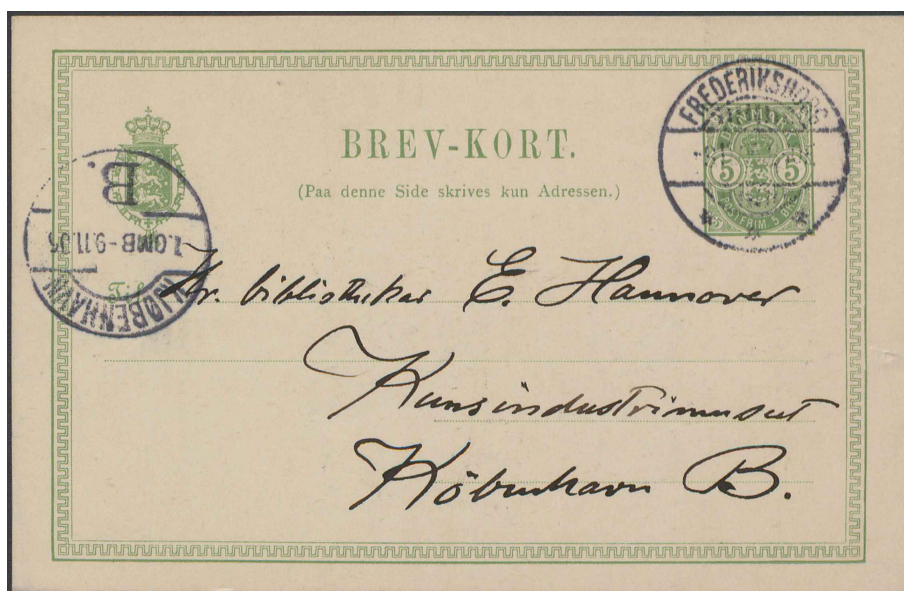 BREV-KORT.
(Paa denne Side skrives kun Adressen.)
FREDERIKSBORG
DANMARK
5 5
KJØBENHAVN
B.
1.OMB-9.11.05
Til
Hr. bibliothekar E. Hannover
Kunsindustrimuseet
Köbenhavn B.